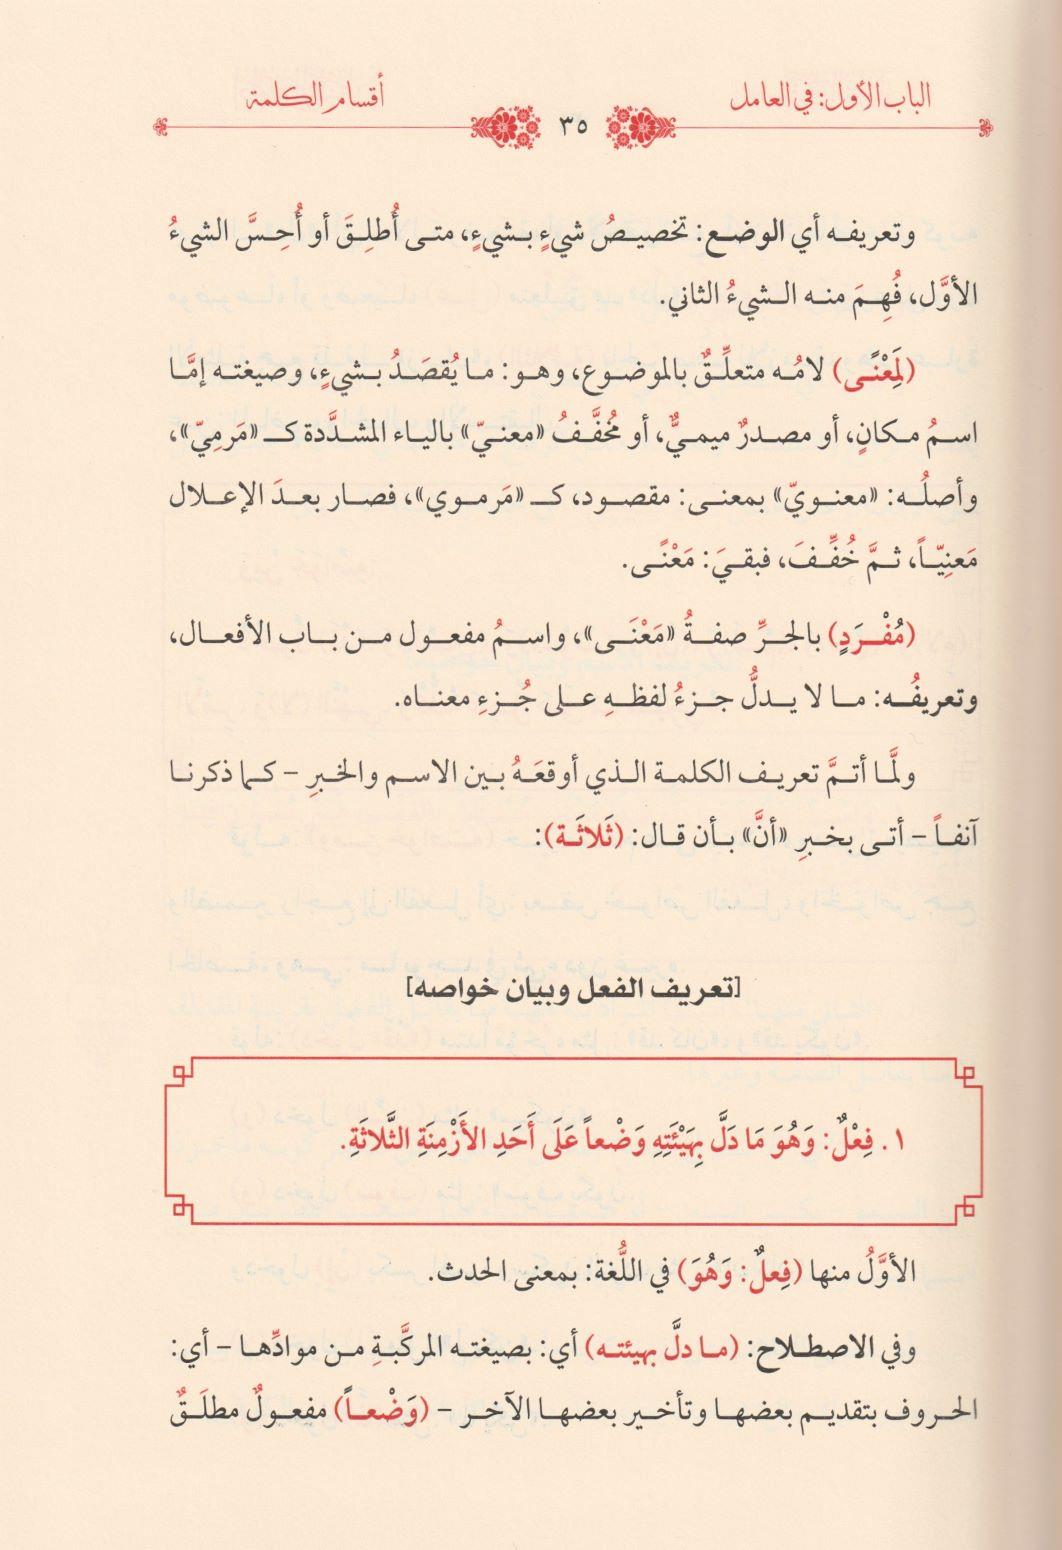 الباب الأول: في العامل
٣٥
أقسام الكلمة
وتعريفه أي الوضع: تخصيصُ شيءٍ بشيءٍ، متى أُطلِقَ أو أُحِسَّ الشيءُ
الأوَّل، فُهِمَ منه الشيءُ الثاني.
(لِمَعْنًى) لامُه متعلِّقٌ بالموضوع، وهو: ما يُقصَدُ بشيءٍ، وصيغته إمَّا
اسمُ مكانٍ، أو مصدرٌ ميميٌّ، أو مُخفَّفُ «معنيّ» بالياء المشدَّدة كـ «مَرمِيّ»،
وأصلُه: «معنويّ» بمعنى: مقصود، كـ «مَرموي»، فصار بعدَ الإعلال
مَعنِيّاً، ثمَّ خُفِّفَ، فبقيَ: مَعْنًى.
(مُفْرَدٍ) بالجرِّ صفةُ «مَعْنَى»، واسمُ مفعول من باب الأفعال،
وتعريفُه: ما لا يدلُّ جزءُ لفظهِ على جُزءِ معناه.
ولمَّا أتمَّ تعريف الكلمة الذي أوقعَهُ بين الاسم والخبرِ - كما ذكرنا
آنفاً - أتى بخبرِ «أنَّ» بأن قال: (ثَلاثَة):
[تعريف الفعل وبيان خواصه]
١. فِعْلٌ: وَهُوَ مَا دَلَّ بِهَيْئَتِهِ وَضْعاً عَلَى أَحَدِ الأَزْمِنَةِ الثَّلاثَةِ.
الأوَّلُ منها (فِعلٌ: وَهُوَ) في اللُّغة: بمعنى الحدث.
وفي الاصطلاح: (ما دلَّ بهيئته) أي: بصيغته المركَّبةِ من موادِّها - أي:
الحروف بتقديم بعضها وتأخير بعضها الآخر - (وَضْعاً) مفعولٌ مطلَقٌ